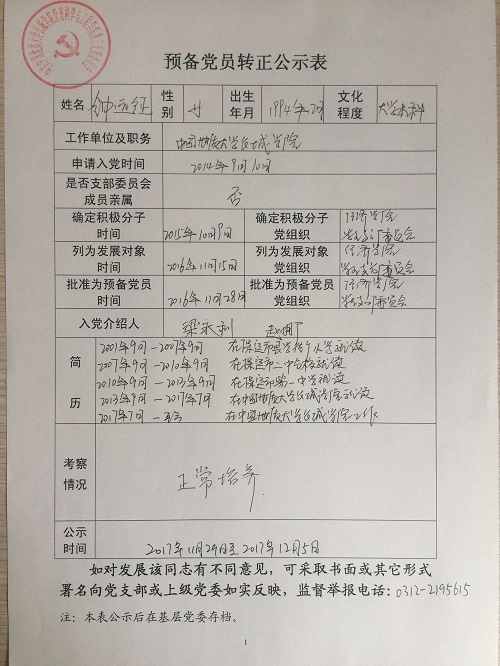 预备党员转正公示表
姓名 性别 女 出生年月 1994年2月 文化程度 大学本科
工作单位及职务 中国地质大学长城学院
申请入党时间 2014年9月10日
是否支部委员会成员亲属 否
确定积极分子时间 2015年10月9日 确定积极分子党组织 经济学院 委员会
列为发展对象时间 2016年11月15日 列为发展对象党组织 经济学院 委员会
批准为预备党员时间 2016年11月28日 批准为预备党员党组织 经济学院 委员会
入党介绍人 梁永利
简历
2001年9月—2007年9月 在保定市 小学就读
2007年9月—2010年9月 在保定市 就读
2010年9月—2013年9月 在保定市第一中学就读
2013年9月—2017年7月 在中国地质大学长城学院就读
2017年7月—至今 在中国地质大学长城学院工作
考察情况 正常培养
公示时间 2017年11月29日至2017年12月5日
如对发展该同志有不同意见，可采取书面或其它形式
署名向党支部或上级党委如实反映，监督举报电话：0312-2195615
注：本表公示后在基层党委存档。
1